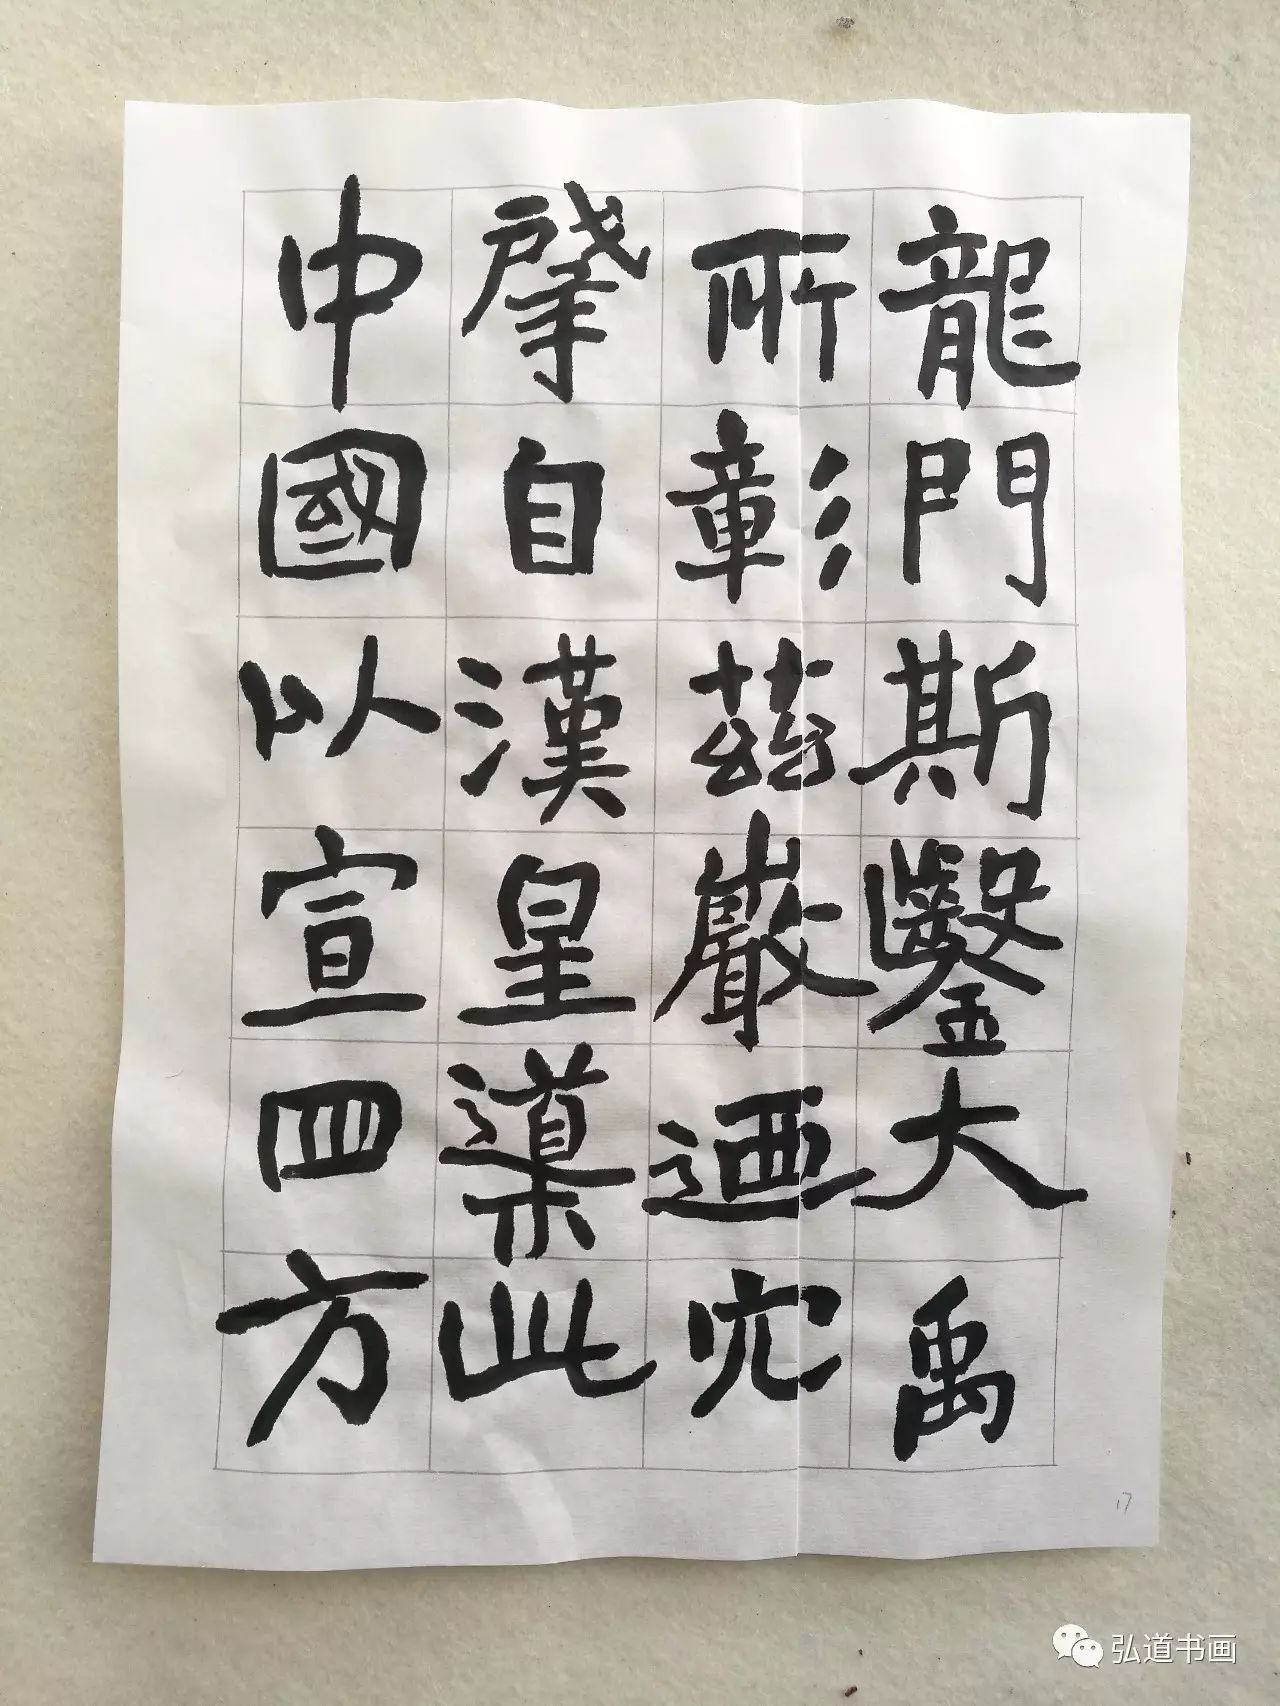 龍門斯鑿大禹
所彰茲巖迺穴
肈自漢皇導此
中國以宣四方
17
弘道书画